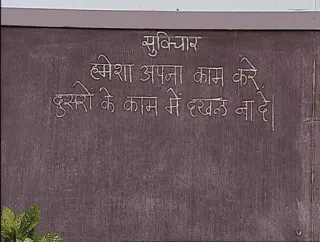 सुविचार
हमेशा अपना काम करें,
दुसरों के काम में दखल ना दें।